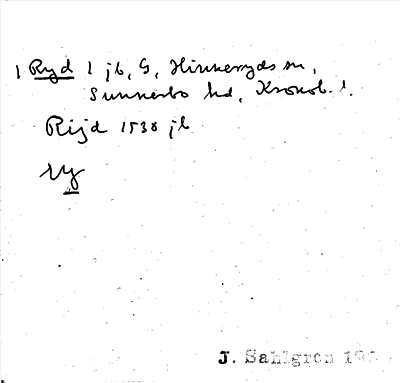 1 Ryd 1 jb, G, Hinneryds sn,
Sunnerbo hd, Kronob. l.
Rijd 1538 jb
ry
J. Sahlgren